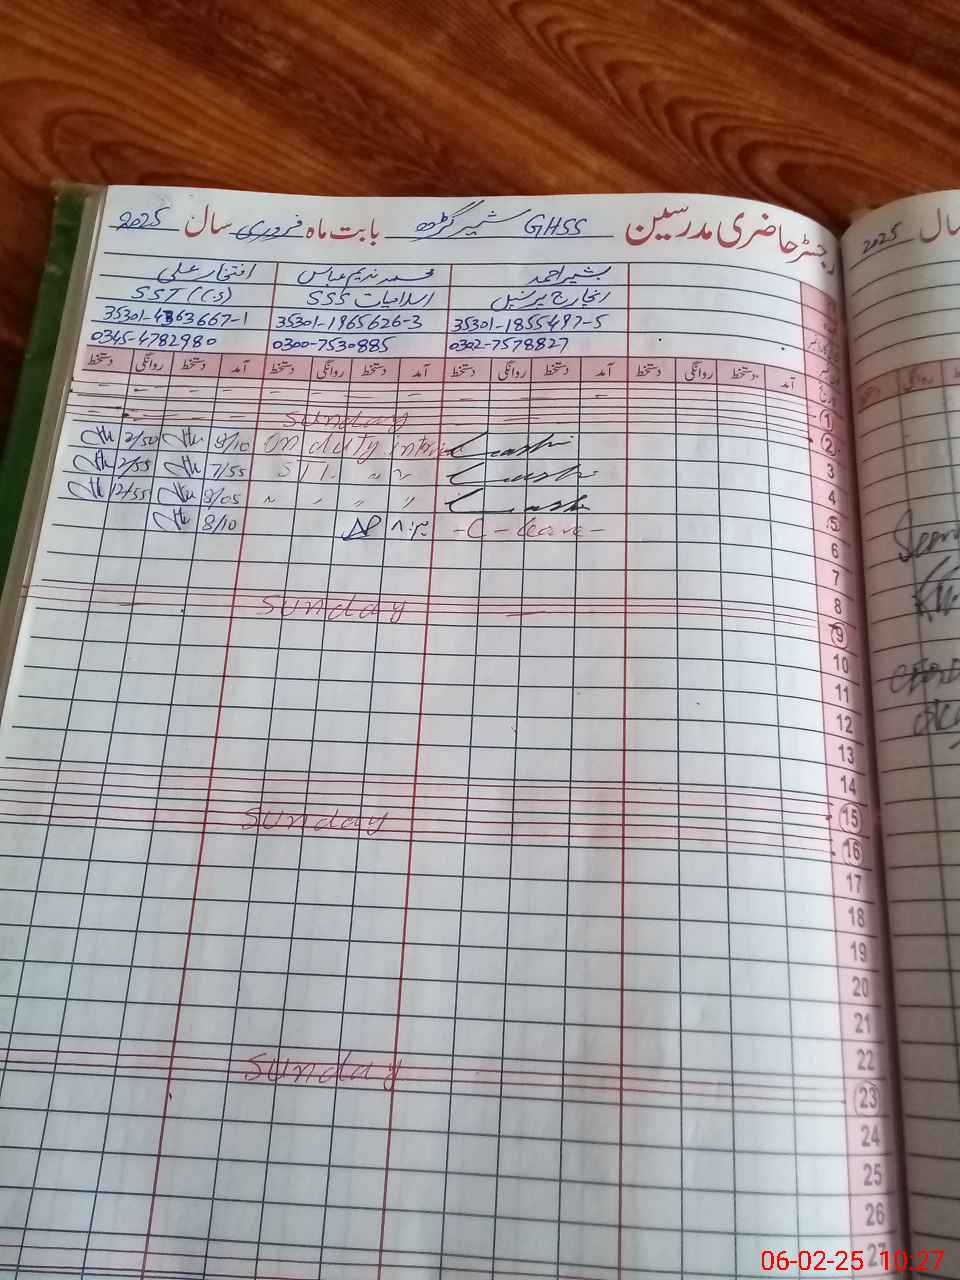 رجسٹر حاضری مدرسین GHSS شمیر گڑھ بابت ماہ فروری سال 2025
بشیر احمد محمد ندیم عباس افتخار علی
انچارج پرنسپل اسلامیات SSS SST
35301-1855497-5 35301-1965626-3 35301-4363667-1
0302-7578827 0300-7530885 0345-4782980
آمد دستخط روانگی دستخط آمد دستخط روانگی دستخط آمد دستخط روانگی دستخط آمد دستخط روانگی دستخط
1
2 Sunday
3 on duty 8/10 2/50
4 7/55 2/55
5 " " " 8/05 12/55
6 - C - leave - ۸:۳۰ 8/10
7
8
9 Sunday
10
11
12
13
14
15
16 Sunday
17
18
19
20
21
22
23 Sunday
24
25
26
27
سال 2025
روانگی دستخط
06-02-25 10:27